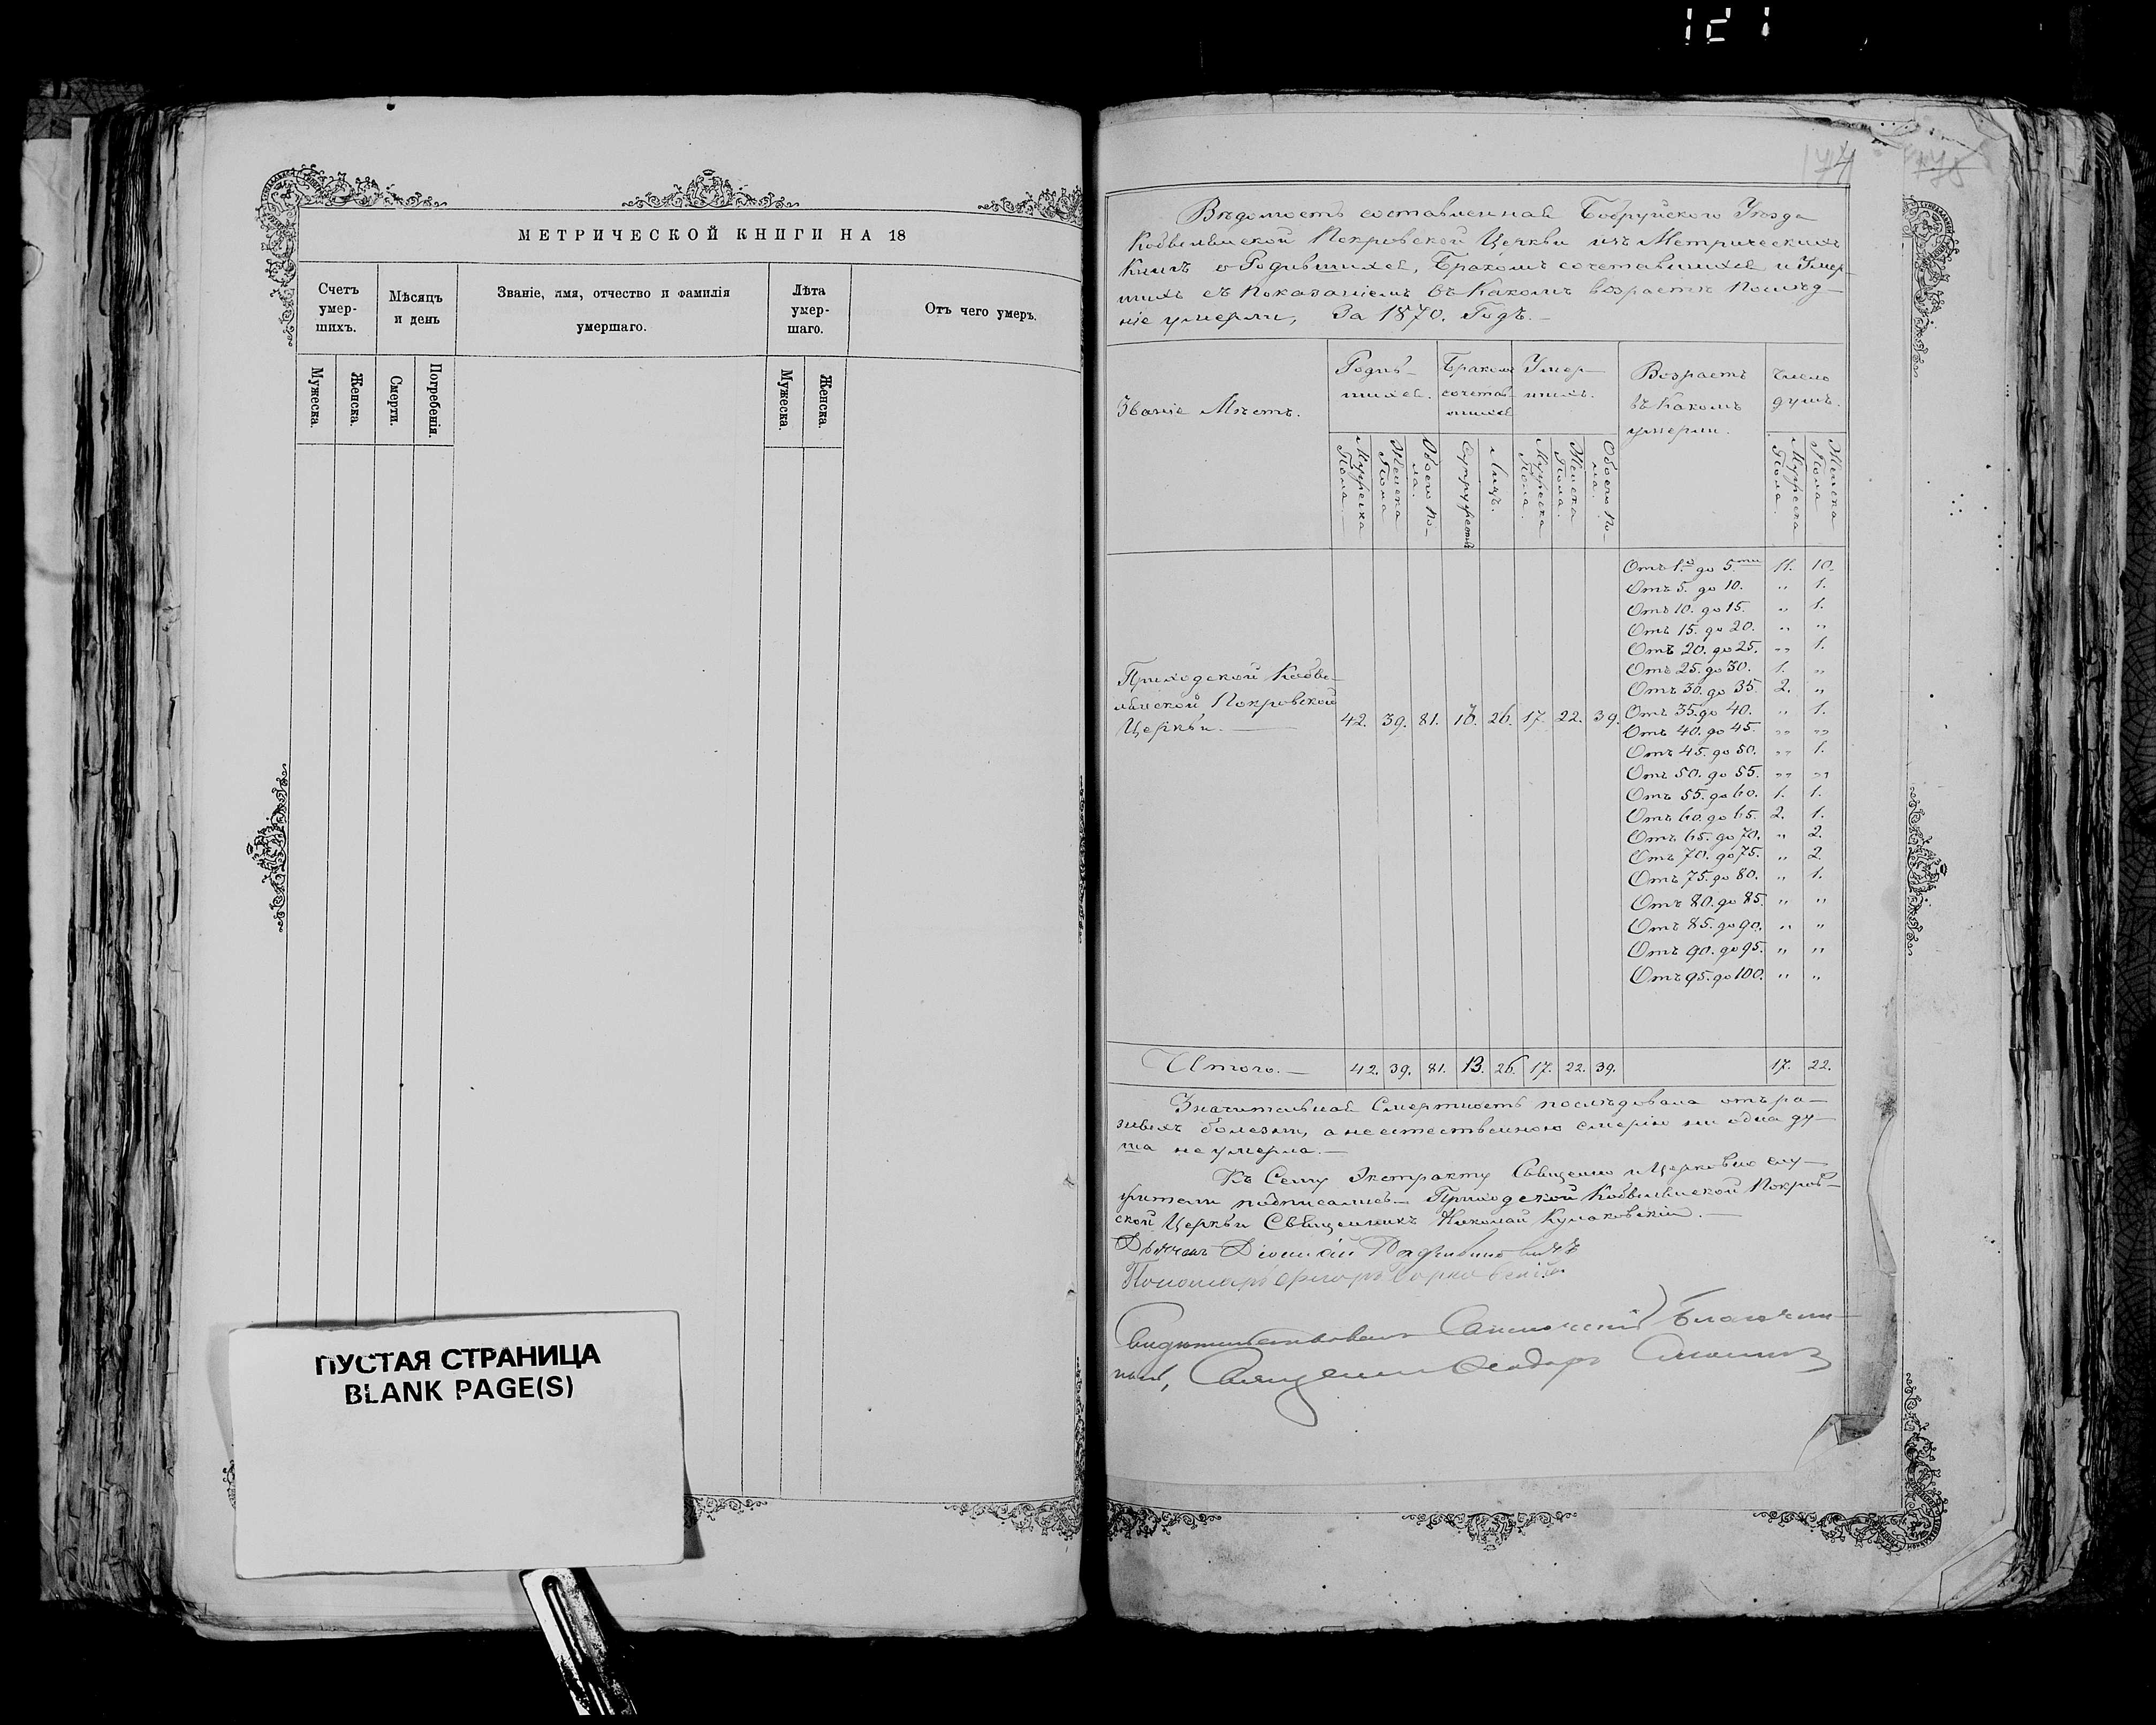 121
МЕТРИЧЕСКОЙ КНИГИ НА 18
Счетъ умер-шихъ.
Мѣсяцъ и день
Званіе, имя, отчество и фамилія умершаго.
Лѣта умер-шаго.
Отъ чего умеръ.
Мужеска.
Женска.
Смерти.
Погребенія.
Мужеска.
Женска.
ПУСТАЯ СТРАНИЦА
BLANK PAGE(S)
174
Вѣдомость составленная Бобруйского Уѣзда
Покровской Церкви изъ Метрическихъ
Книгъ о Родившихся, Бракомъ сочетавшихся и Умер-
шихъ съ показаніемъ въ Какомъ возрастѣ послѣд-
ніе умерли, За 1870. Годъ.—
Званіе Мѣстъ.
Родив-
шихся.
Бракомъ
сочетав-
шихся
Умер-
шихъ.
Возрастъ
въ Какомъ
умерли.
Число
душъ.
Мужеска Пола.
Женска Пола
Обоего По-ла.
Супружествъ
Лицъ.
Мужеска Пола.
Женска Пола.
Обоего По-ла.
Мужеска Пола.
Женска Пола
Отъ 1.го до 5.ти 11. 10.
Отъ 5. до 10. " 1.
Отъ 10. до 15. " 1.
Отъ 15. до 20. " "
Отъ 20. до 25. " 1.
Отъ 25. до 30. 1. "
Отъ 30. до 35. 2. "
Приходской
Покровской
Церкви.— 42. 39. 81. 26. 17. 22. 39.
Отъ 35. до 40. " 1.
Отъ 40. до 45. " "
Отъ 45. до 50. " 1.
Отъ 50. до 55. " "
Отъ 55. до 60. 1. 1.
Отъ 60. до 65. 2. 1.
Отъ 65. до 70. " 2.
Отъ 70. до 75. " 2.
Отъ 75. до 80. " 1.
Отъ 80. до 85. " "
Отъ 85. до 90. " "
Отъ 90. до 95. " "
Отъ 95. до 100. " "
Итого.— 42. 39. 81. 13. 26. 17. 22. 39. 17. 22.
Значительная Смертность послѣдовала отъ ра-
зныхъ болезни, а неестественною смертію ни одна ду-
ша не умерла.—
Къ Сему Экстракту Священно и Церковно слу-
жители подписались— Приходской Покров-
ской Церкви Священникъ Николай Кулаковскій.—
Дьячекъ
Пономарь
Свидѣтельствовалъ Благочин-
ный, Священникъ Феодоръ